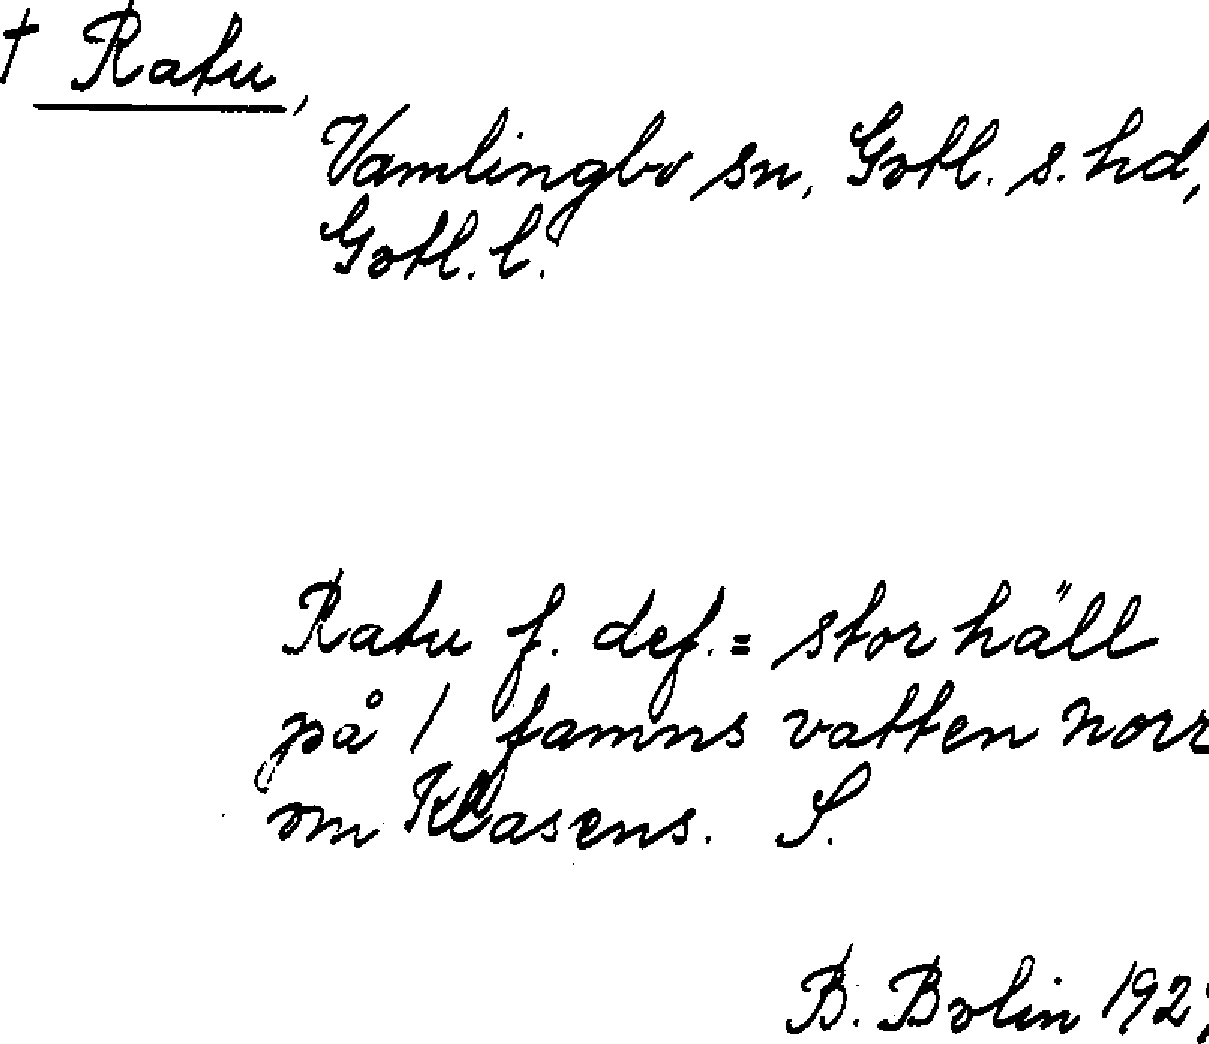 † Ratu,
Vamlingbo sn, Gotl. s. hd,
Gotl. l.
Ratu f. def. = stor häll
på 1 famns vatten norr
om Klasens. S.
B. Bolin